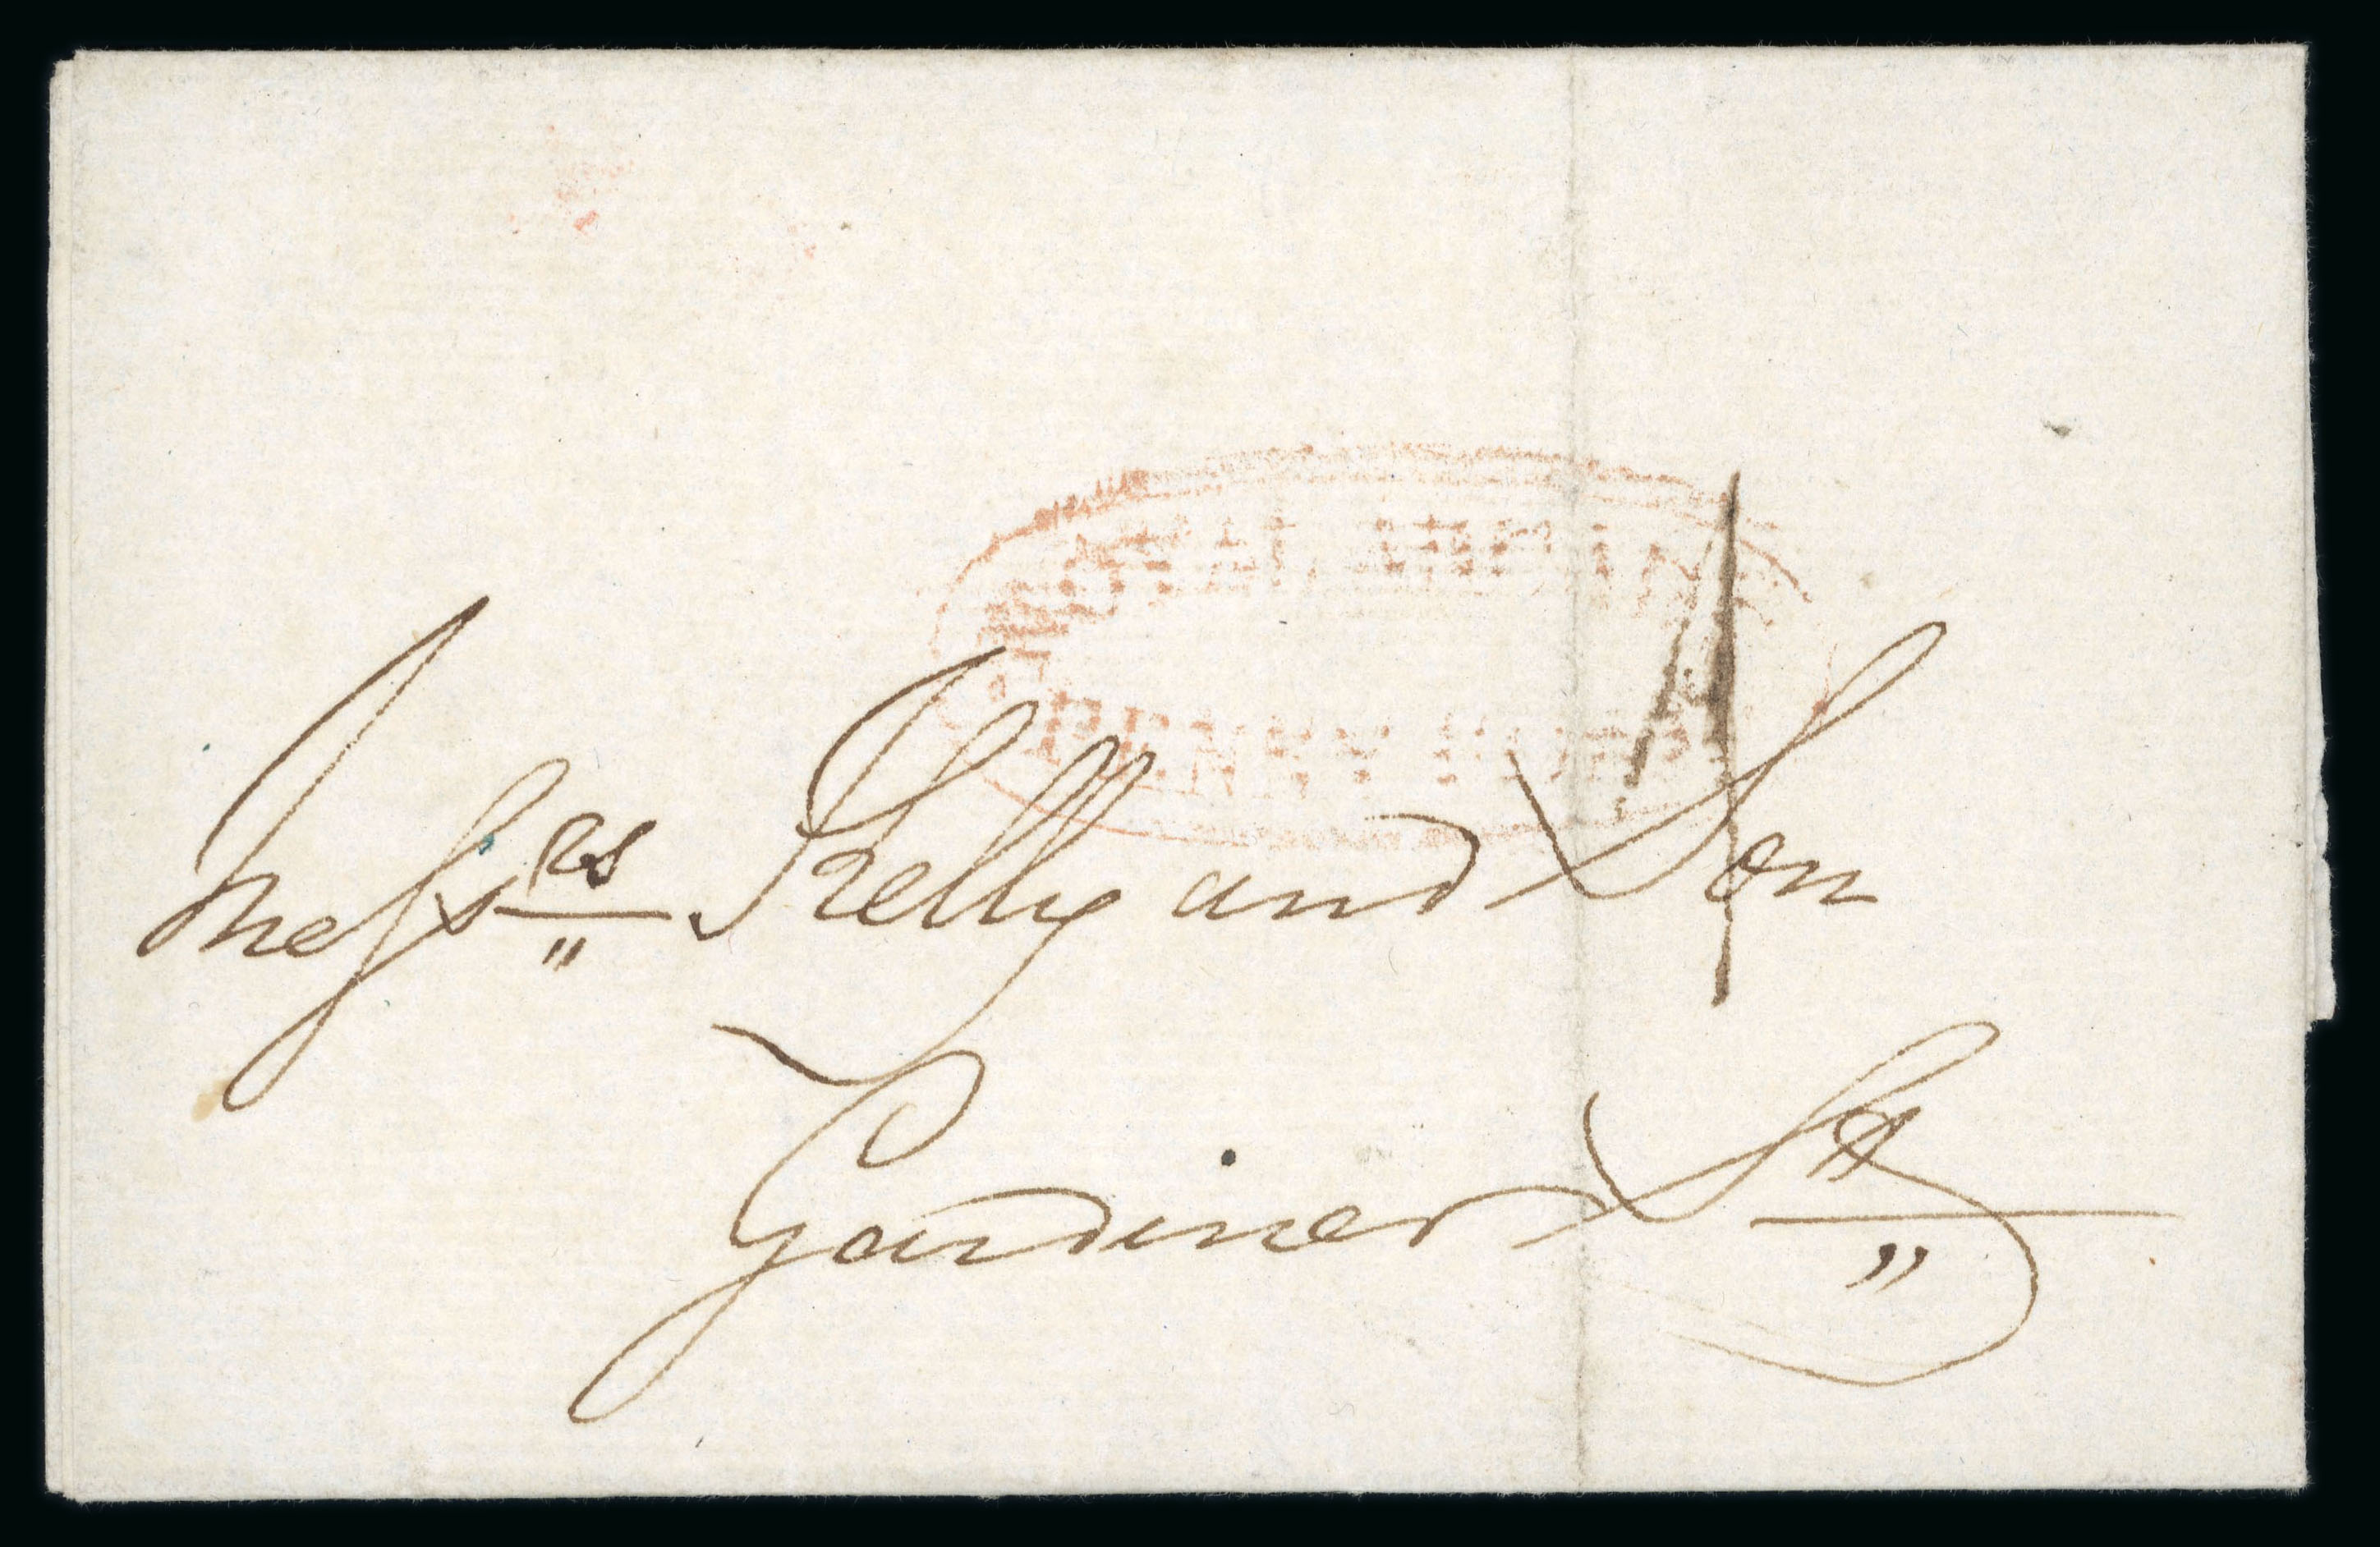 PENNY POST
Messrs Kelly and Son
Gardiner St